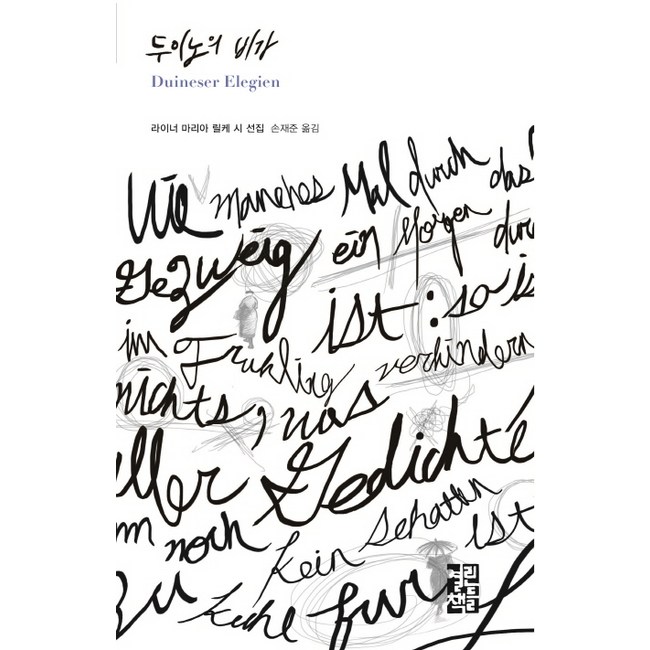 두이노의 비가
Duineser Elegien
라이너 마리아 릴케 시 선집 손재준 옮김
Wie manches Mal durch das
Gezweig ein Morgen durc
ist: so is
im Fruhling verhindern
nichts, was
aller Gedichte
noch kein Schatten ist
zu kuhl fur
열린
책들